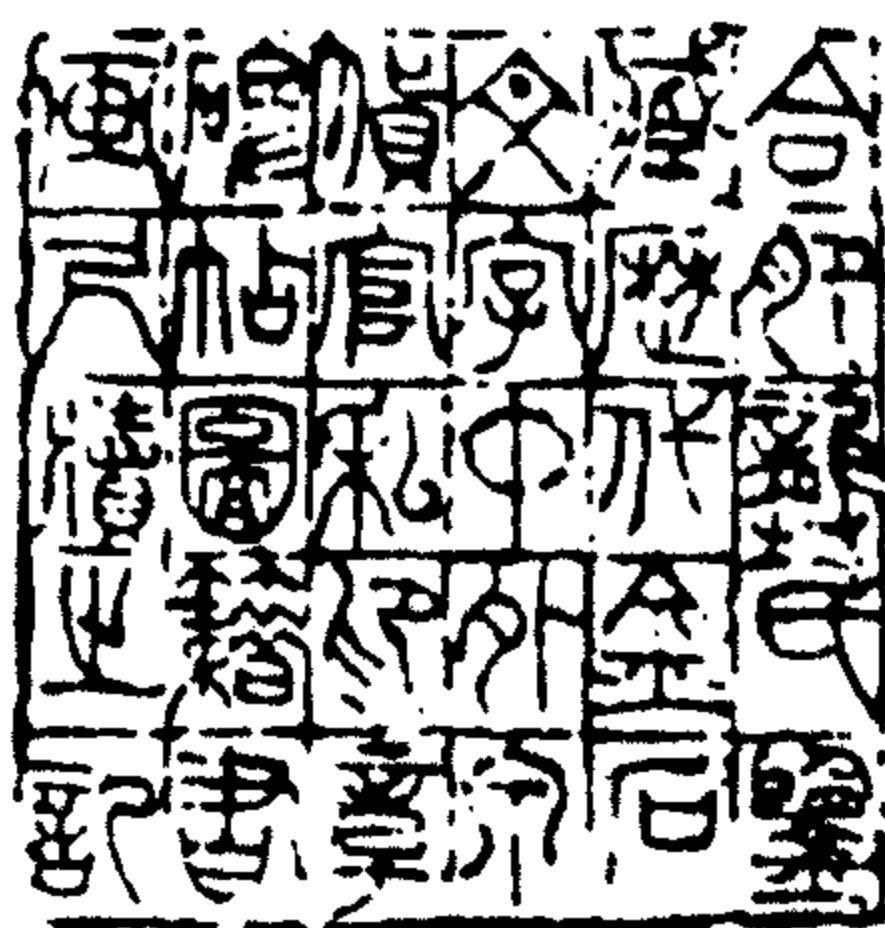 合肥龔氏鑒
藏歷代金石
文字中外泉
貨官私印章
帖圖籍書
尺之記